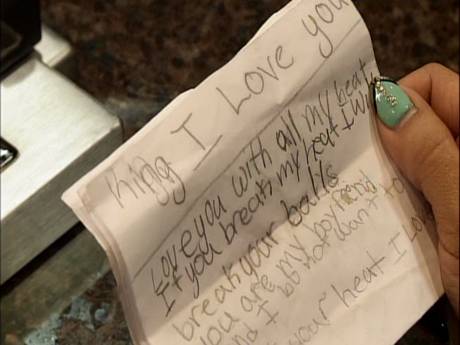 higg I Love you
Love you with all my heat
If you breath my heat I will
break your balls
you are my boyfriend
and I do not want to
your heat I Lov